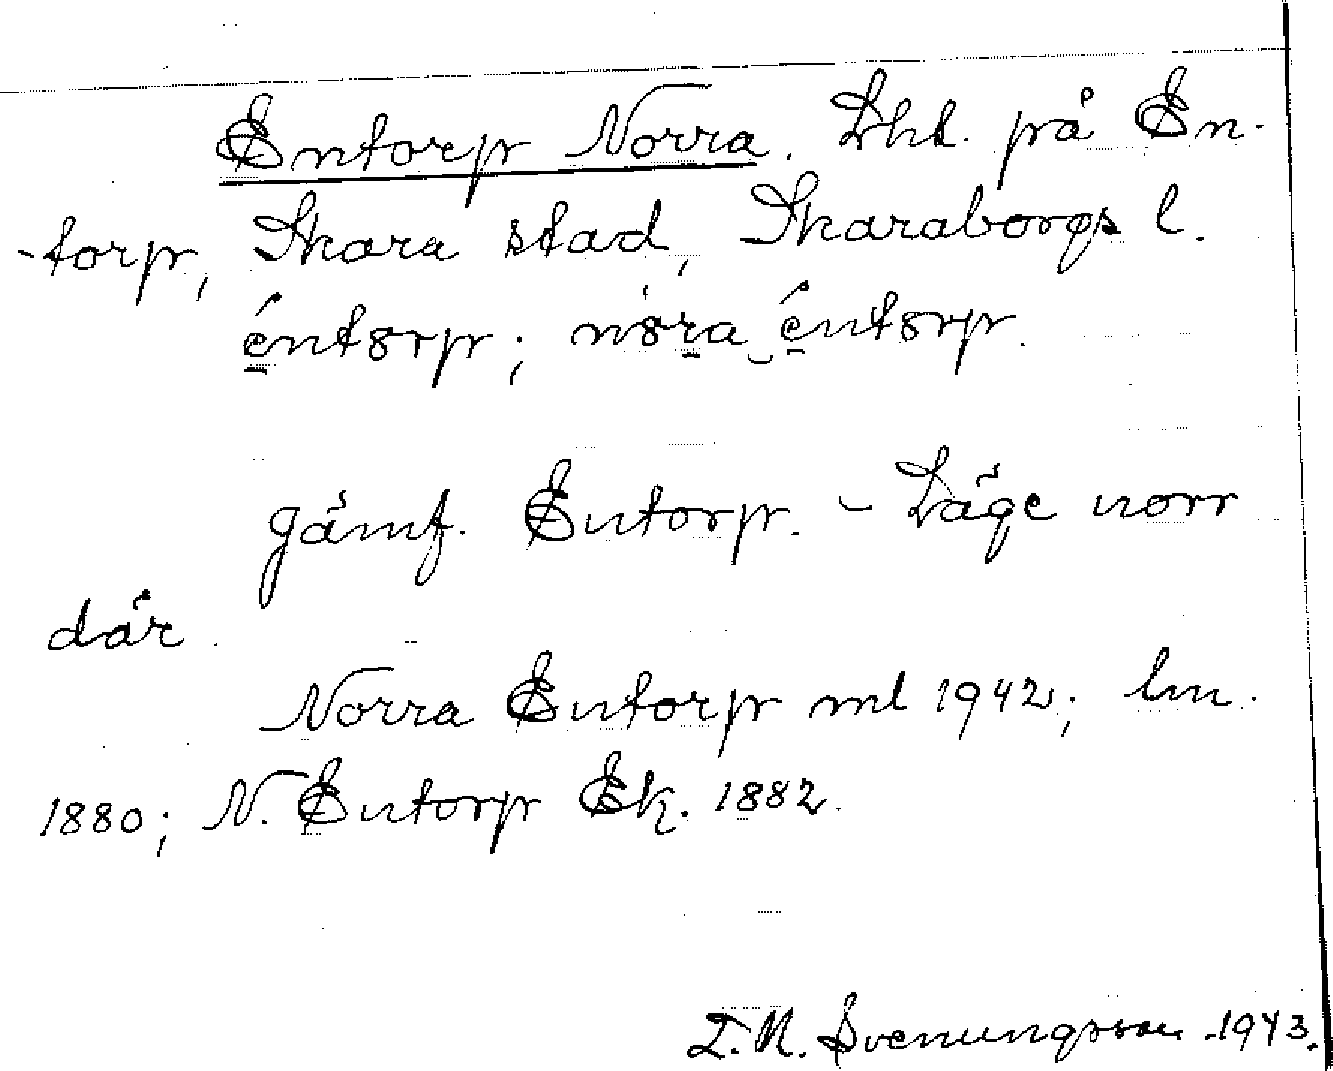 Entorp Norra. Lht. på En-
-torp, Skara stad, Skaraborgs l.
éntorp; nòra éntorp.
Jämf. Entorp. - Läge norr
där.
Norra Entorp ml 1942; lm.
1880; N. Entorp Ek. 1882.
Svenungsson 1943.